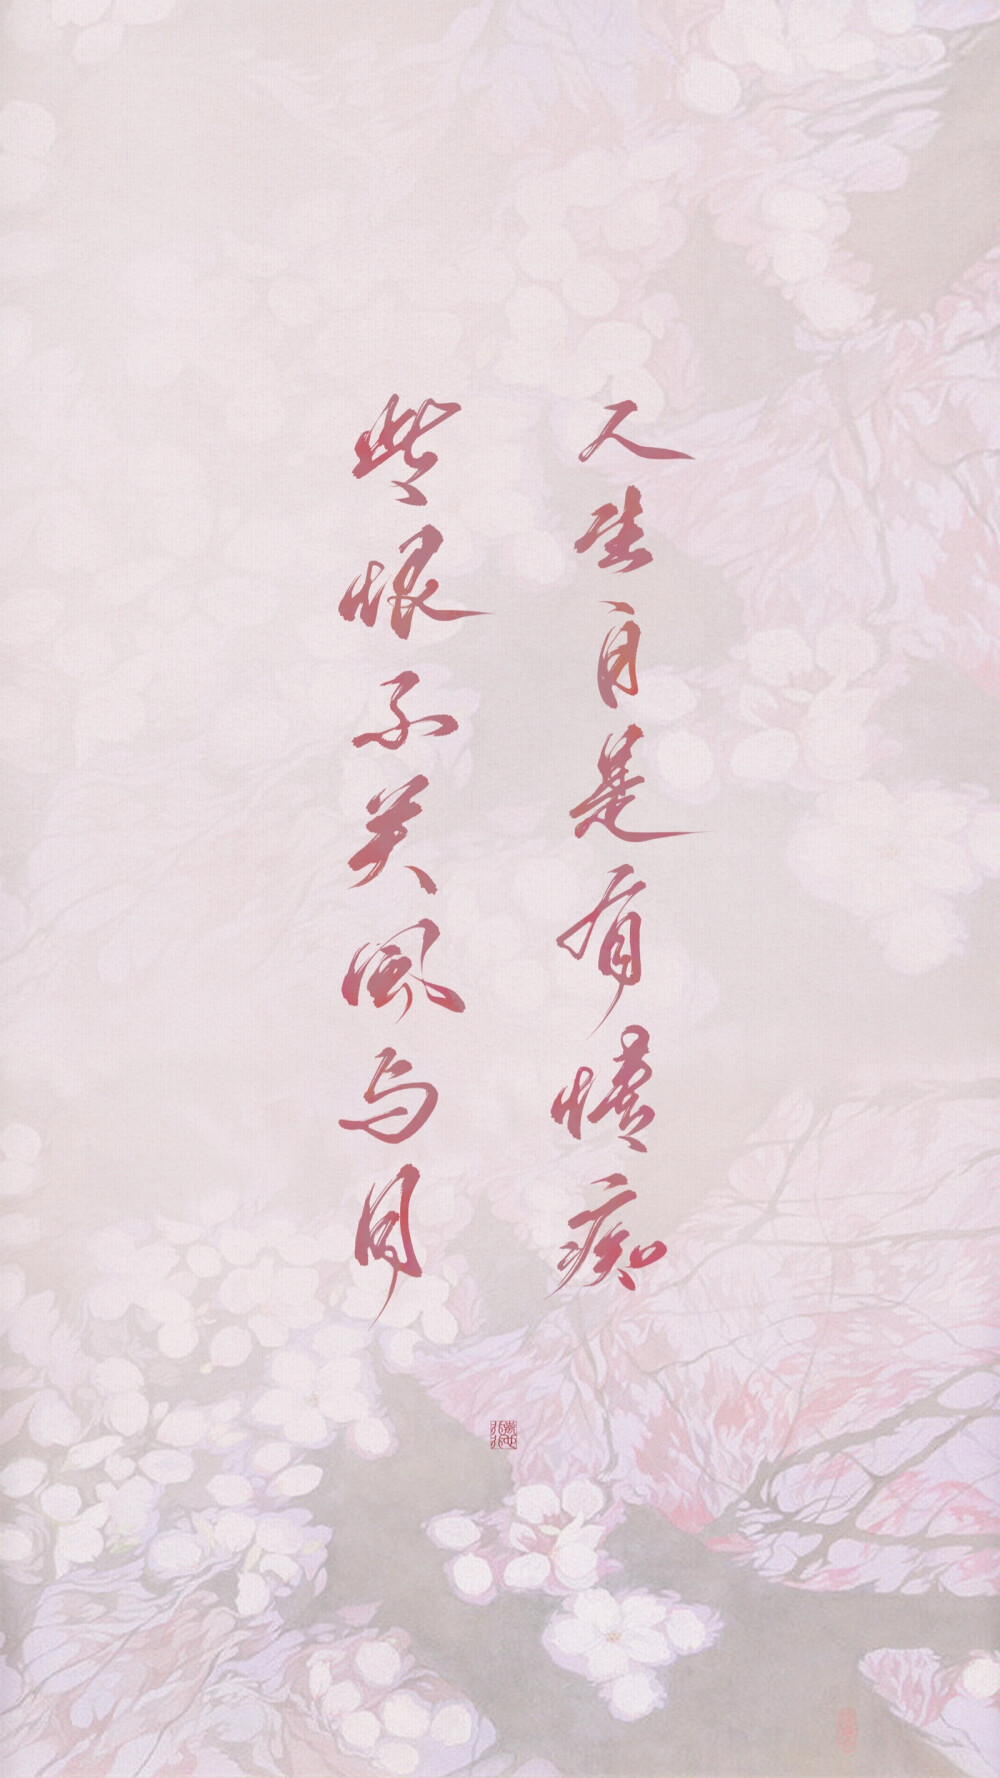 人生自是有情痴
些恨不关風与月